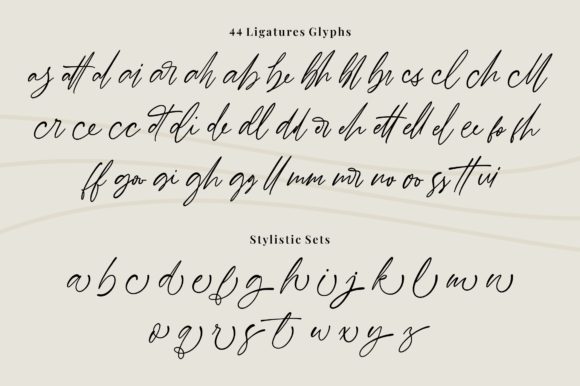 44 Ligatures Glyphs
as att al ai ar ah ab be bh bl br cs cl ch cll
cr ce cc ct di de dl dd er eh ett ell el ee fo fh
ff go gi gh gg ll mm mr no oo ss tt ui
Stylistic Sets
a b c d e f g h i j k l m n
o q r s t w x y z